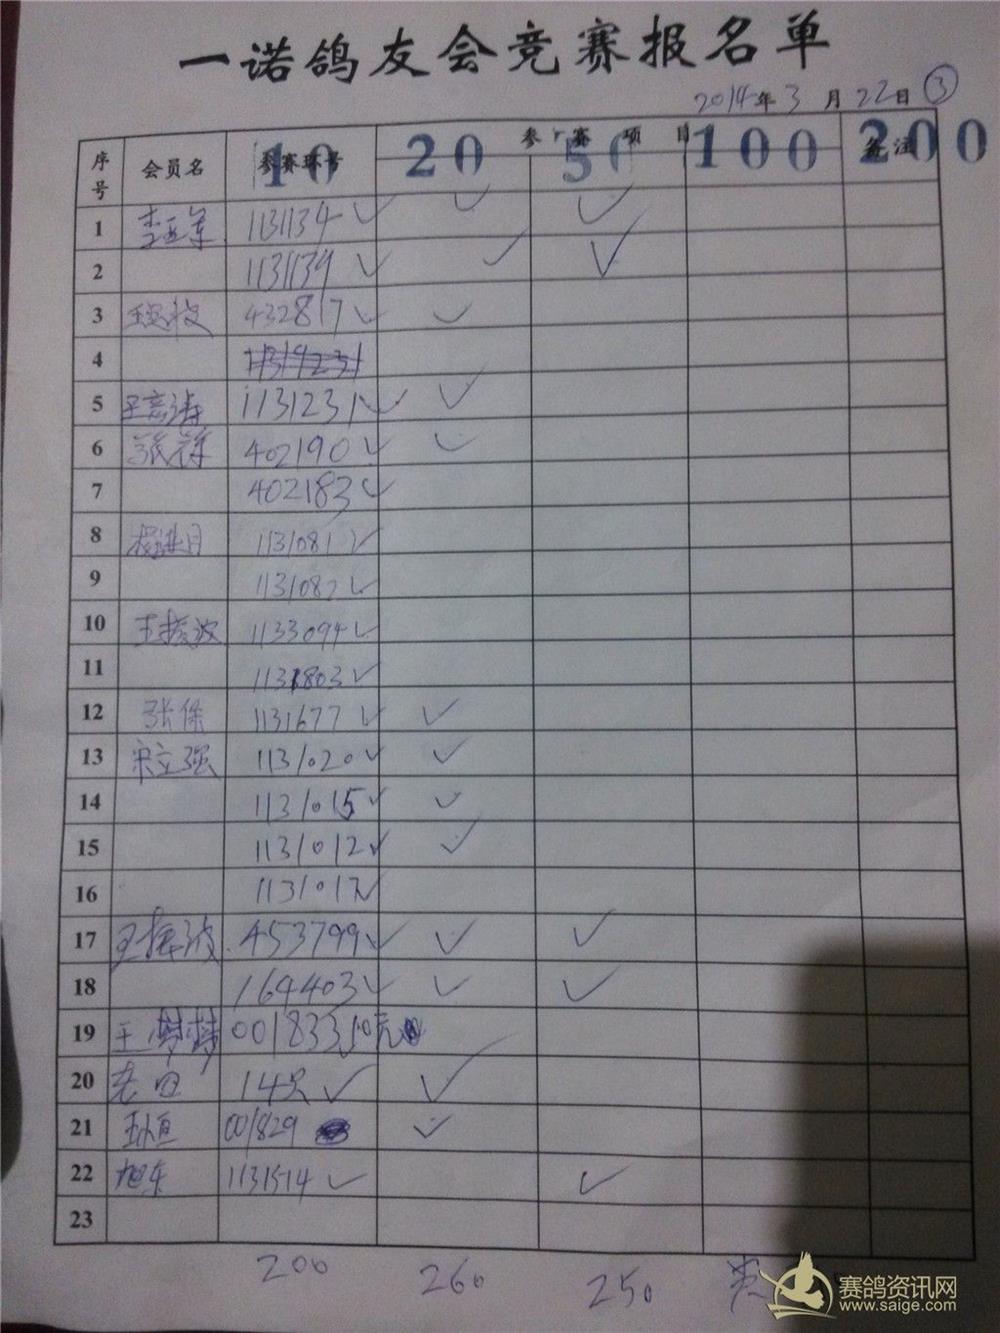 一诺鸽友会竞赛报名单
2014年3月22日 ③
序号 会员名 参赛环号 参赛项目 备注
10 20 50 100 200
1 1131134 ✓ ✓ ✓
2 1131139 ✓ ✓ ✓
3 432817 ✓ ✓
4
5 1131231 ✓ ✓
6 402190 ✓ ✓
7 402183 ✓
8 1131081 ✓
9 1131082 ✓
10 王振波 1133094 ✓
11 1131803 ✓
12 1131677 ✓ ✓
13 宋立强 1131020 ✓ ✓
14 1131015 ✓ ✓
15 1131012 ✓ ✓
16 1131017 ✓
17 453799 ✓ ✓ ✓
18 164403 ✓ ✓ ✓
19 001833
20 14只 ✓ ✓
21 001829 ✓
22 旭东 1131514 ✓ ✓
23
200 260 250
赛鸽资讯网
www.saige.com